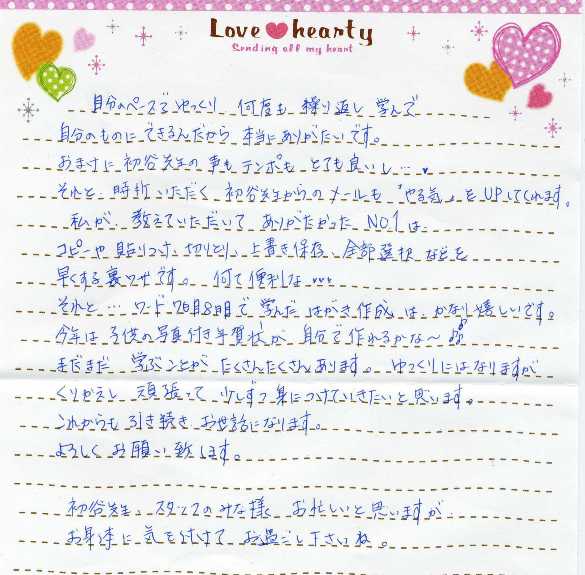 Love hearty
Sending all my heart
自分のペースでゆっくり 何度も 繰り返し 学んで
自分のものに できるんだから 本当にありがたいです。
おまけに 初谷先生の 声も テンポも とても良いし…
それと、時折いただく 初谷先生からのメールも 「やる気」をUPしてくれます。
私が、教えていただいて ありがたかった NO.1は、
コピーや 貼りつけ、切りとり、上書き保存、全部選択 などを
早くする裏ワザです。 何て便利な…
それと… ワード7日目8日目で 学んだ はがき作成 は、かなり嬉しいです。
今年は 子供の写真付き年賀状が 自分で作れるかな〜♪
まだまだ 学ぶことが たくさんたくさんあります。ゆっくりにはなりますが
くりかえし 頑張って 少しずつ身につけていきたいと思います。
これからも 引き続き お世話になります。
よろしく お願い致します。
初谷先生、スタッフのみな様 お忙しいと思いますが
お身体に 気を付けて お過ごし下さいね。